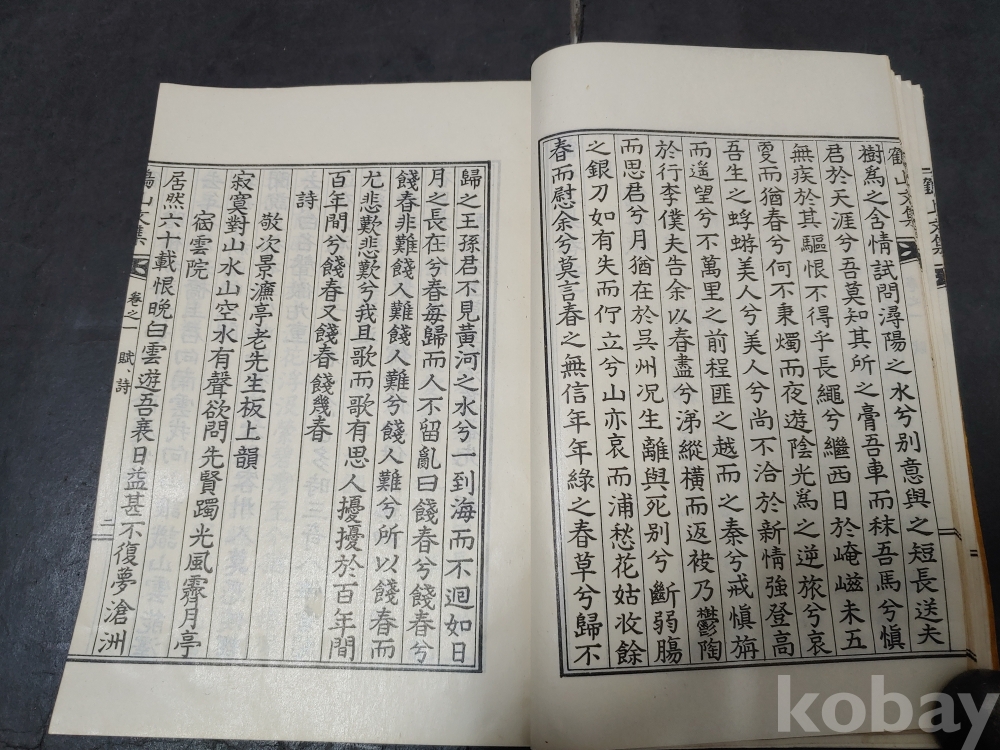 樹爲之含情試問潯陽之水兮別意與之短長送夫
君於天涯兮吾莫知其所之膏吾車而秣吾馬兮愼
無疾於其驅恨不得乎長繩兮繼西日於崦嵫未五
更而猶春兮何不秉燭而夜遊陰光爲之逆旅兮哀
吾生之蜉蝣美人兮美人兮尚不洽於新情強登高
而遙望兮不萬里之前程匪之越而之秦兮戒愼旃
於行李僕夫告余以春盡兮涕縱橫而返袂乃鬱陶
而思君兮月猶在於吳州况生離與死別兮斷弱膓
之銀刀如有失而佇立兮山亦哀而浦愁花姑收餘
春而慰余兮莫言春之無信年年綠之春草兮歸不
歸之王孫君不見黃河之水兮一到海而不迴如日
月之長在兮春每歸而人不留亂曰餞春兮餞春兮
餞春非難餞人難餞人難兮餞人難兮所以餞春而
尤悲歎悲歎兮我且歌而歌有思人擾擾於百年間
百年間兮餞春又餞春餞幾春
詩
敬次景濂亭老先生板上韻
寂寞對山水山空水有聲欲問先賢躅光風霽月亭
宿雲院
居然六十載恨晩白雲遊吾衰日益甚不復夢滄洲
山文集 卷之一 賦、詩 二
kobay